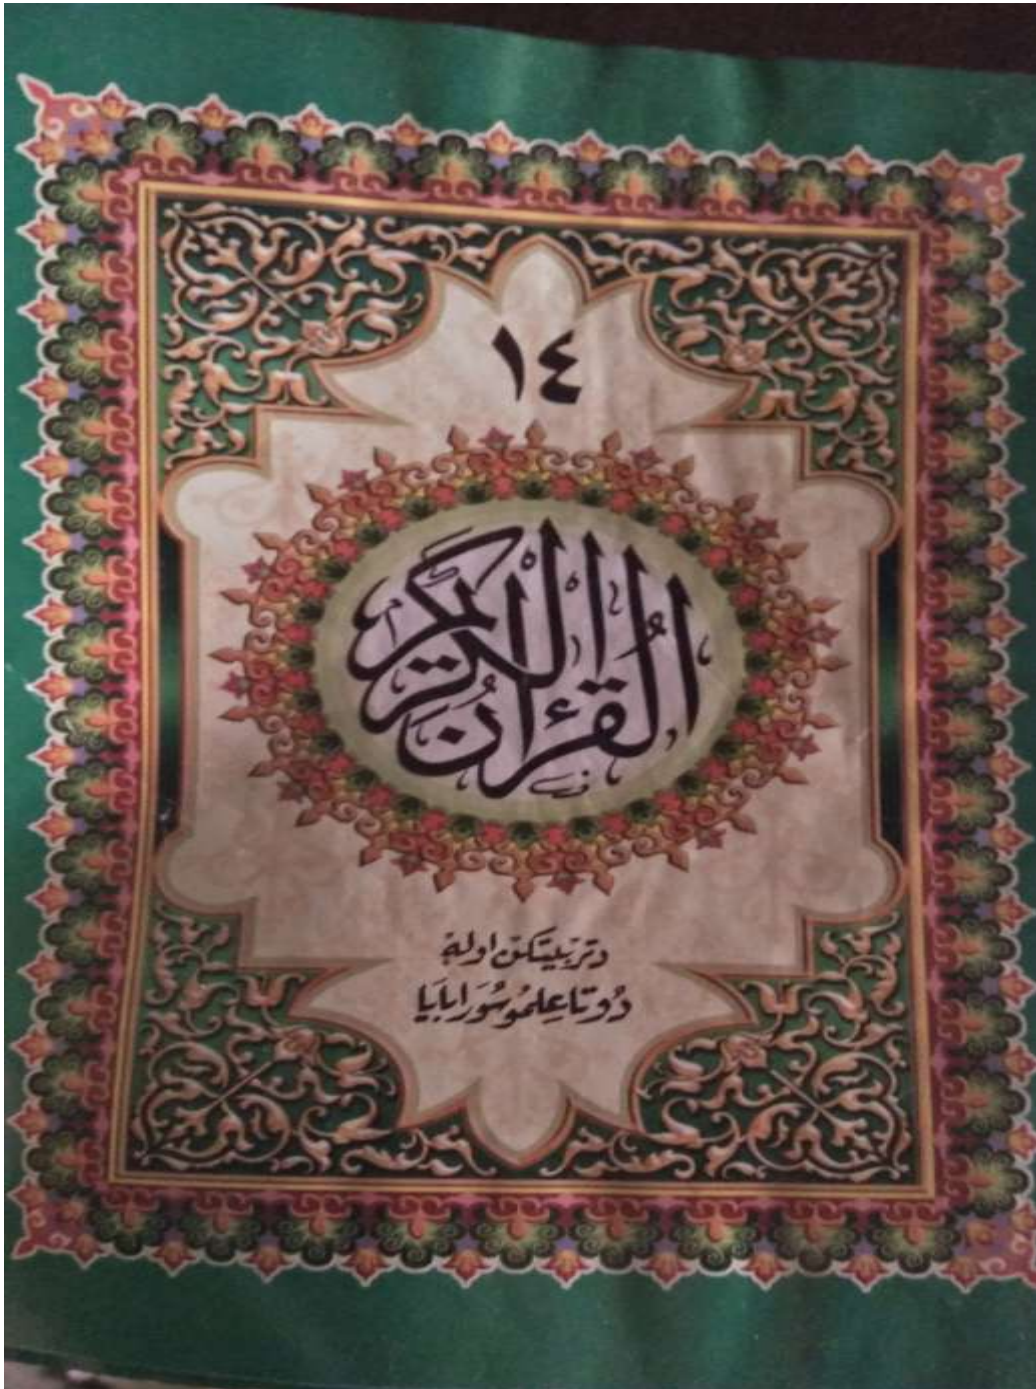 ١٤
القرآن الكريم
دتربيتكن اوله
دُوتا عِلمُو سُورَابَايَا